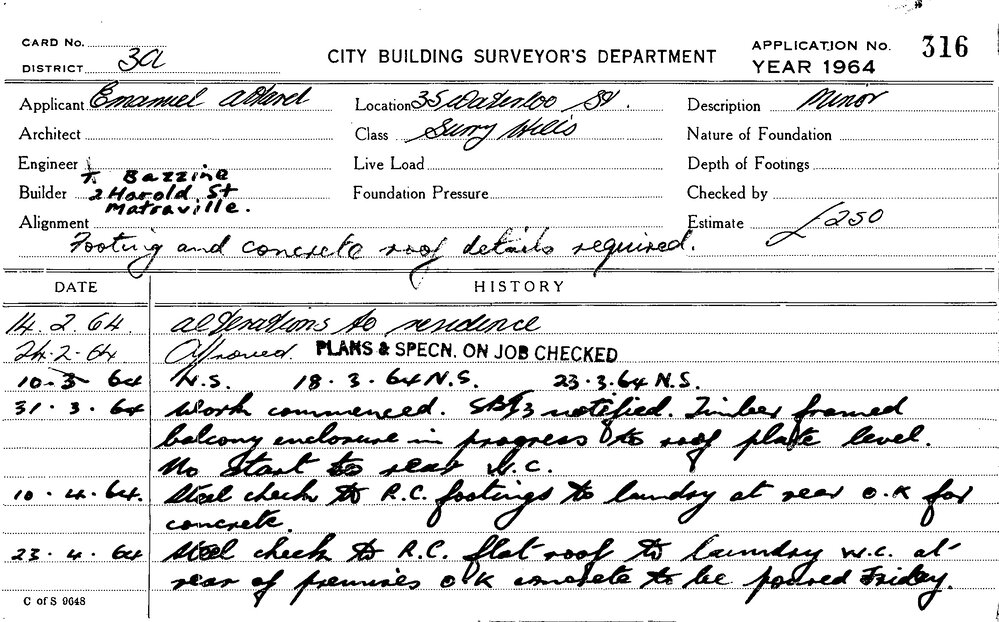 CARD No.
DISTRICT 3a
CITY BUILDING SURVEYOR'S DEPARTMENT
APPLICATION No. 316
YEAR 1964
Applicant Emanuel
Location 35 Waterloo St.
Description Minor
Architect
Class Surry Hills
Nature of Foundation
Engineer
Live Load
Depth of Footings
T. Bazzine
Builder 2 Harold. St
Matraville.
Foundation Pressure
Checked by
Alignment
Estimate £250
Footing and concrete roof details required.
DATE HISTORY
14. 2. 64. alterations to residence
24. 2. 64 Approved. PLANS & SPECN. ON JOB CHECKED
10. 3. 64 N.S. 18. 3. 64 N.S. 23. 3. 64 N.S.
31. 3. 64 Work commenced. notified. Timber framed
balcony enclosure in progress to roof plate level.
No Start to rear W.C.
10. 4. 64. Steel check to R.C. footings to laundry at rear O.K for
concrete.
23. 4. 64 Steel check to R.C. flat roof to laundry W.C. at
rear of premises OK concrete to be poured Friday.
C of S 9648